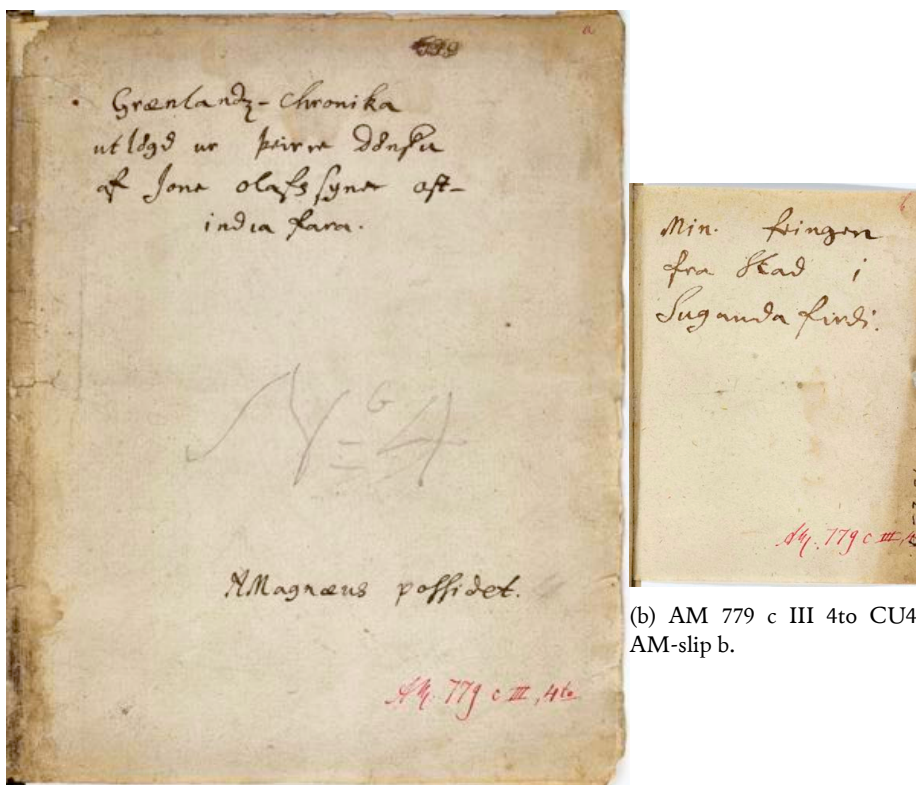 a
Grænlandz-Chronika
utlögd ur þeirre dönsku
af Jone olafs syne ost-
india fara.
No 4
AMagnæus possidet.
AM. 779 c III, 4to
b
Min. feingen
fra Stad i
Suganda firdi.
AM. 779 c III, 4
(b) AM 779 c III 4to CU4
AM-slip b.